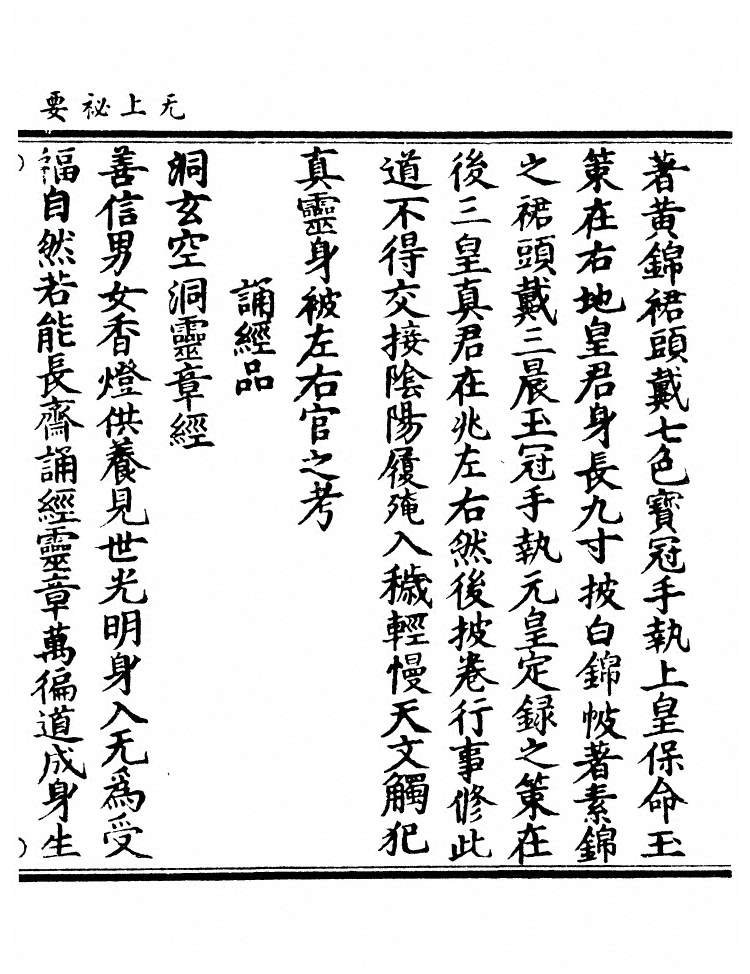 无上祕要
著黃錦裙頭戴七色寶冠手執上皇保命玉
策在右地皇君身長九寸披白錦帔著素錦
之裙頭戴三晨玉冠手執元皇定録之策在
後三皇真君在兆左右然後披卷行事修此
道不得交接陰陽履殗入穢輕慢天文觸犯
真靈身被左右官之考
誦經品
洞玄空洞靈章經
善信男女香燈供養見世光明身入无為受
福自然若能長齋誦經靈章萬徧道成身生